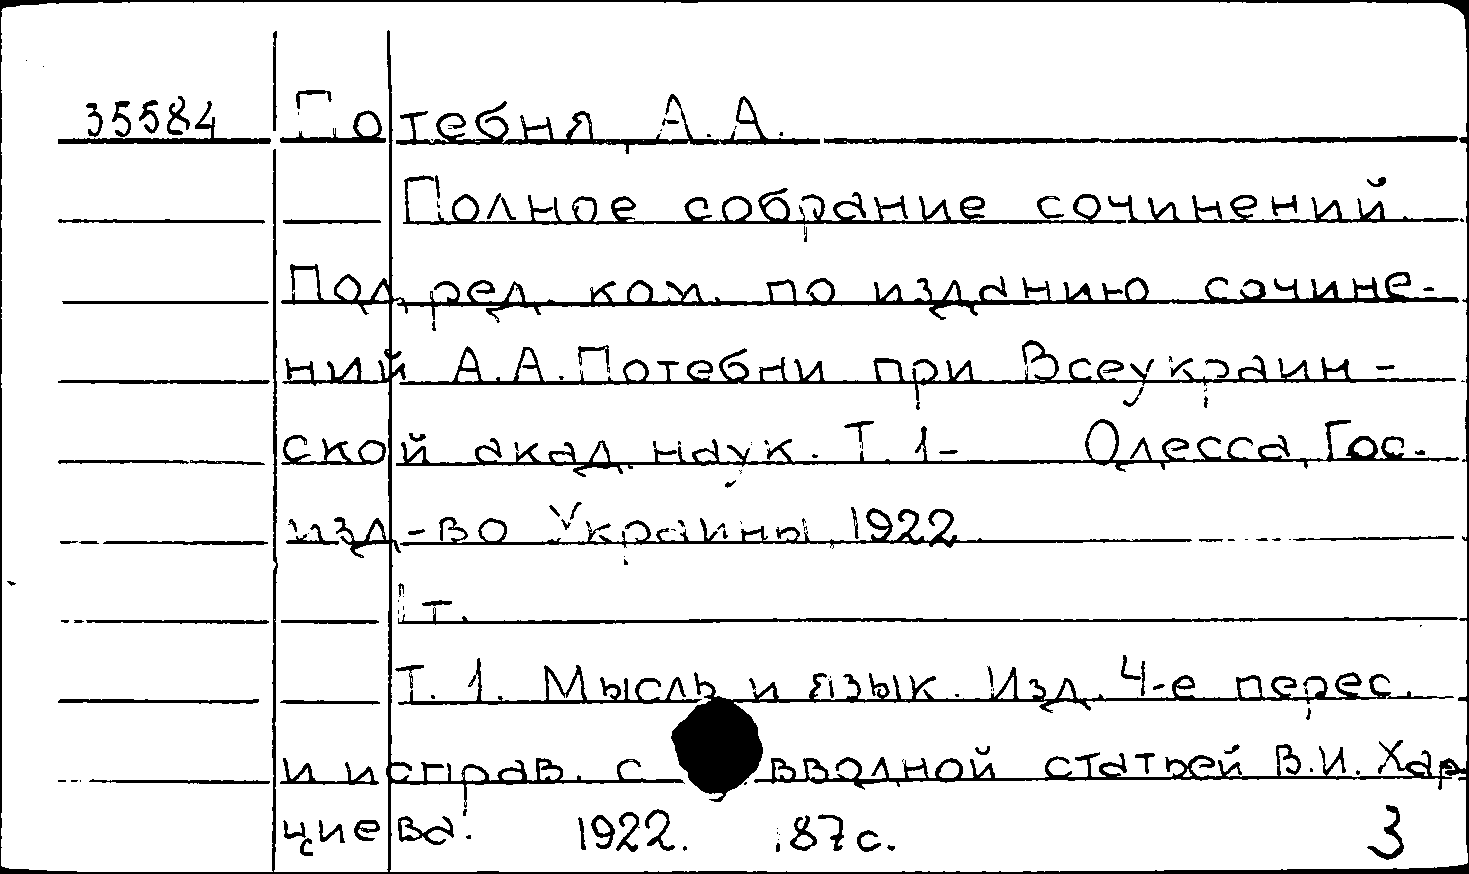 35584 Потебня, А.А.
Полное собрание сочинений.
Под ред. ком. по изданию сочине-
ний А.А. Потебни при Всеукраин-
ской акад. наук. Т. 1- Одесса, Гос.
изд-во Украины, 1922
1 т.
Т. 1. Мысль и язык. Изд. 4-е перес.
и исправ. с вводной статьей В.И. Хар
циева. 1922. 3